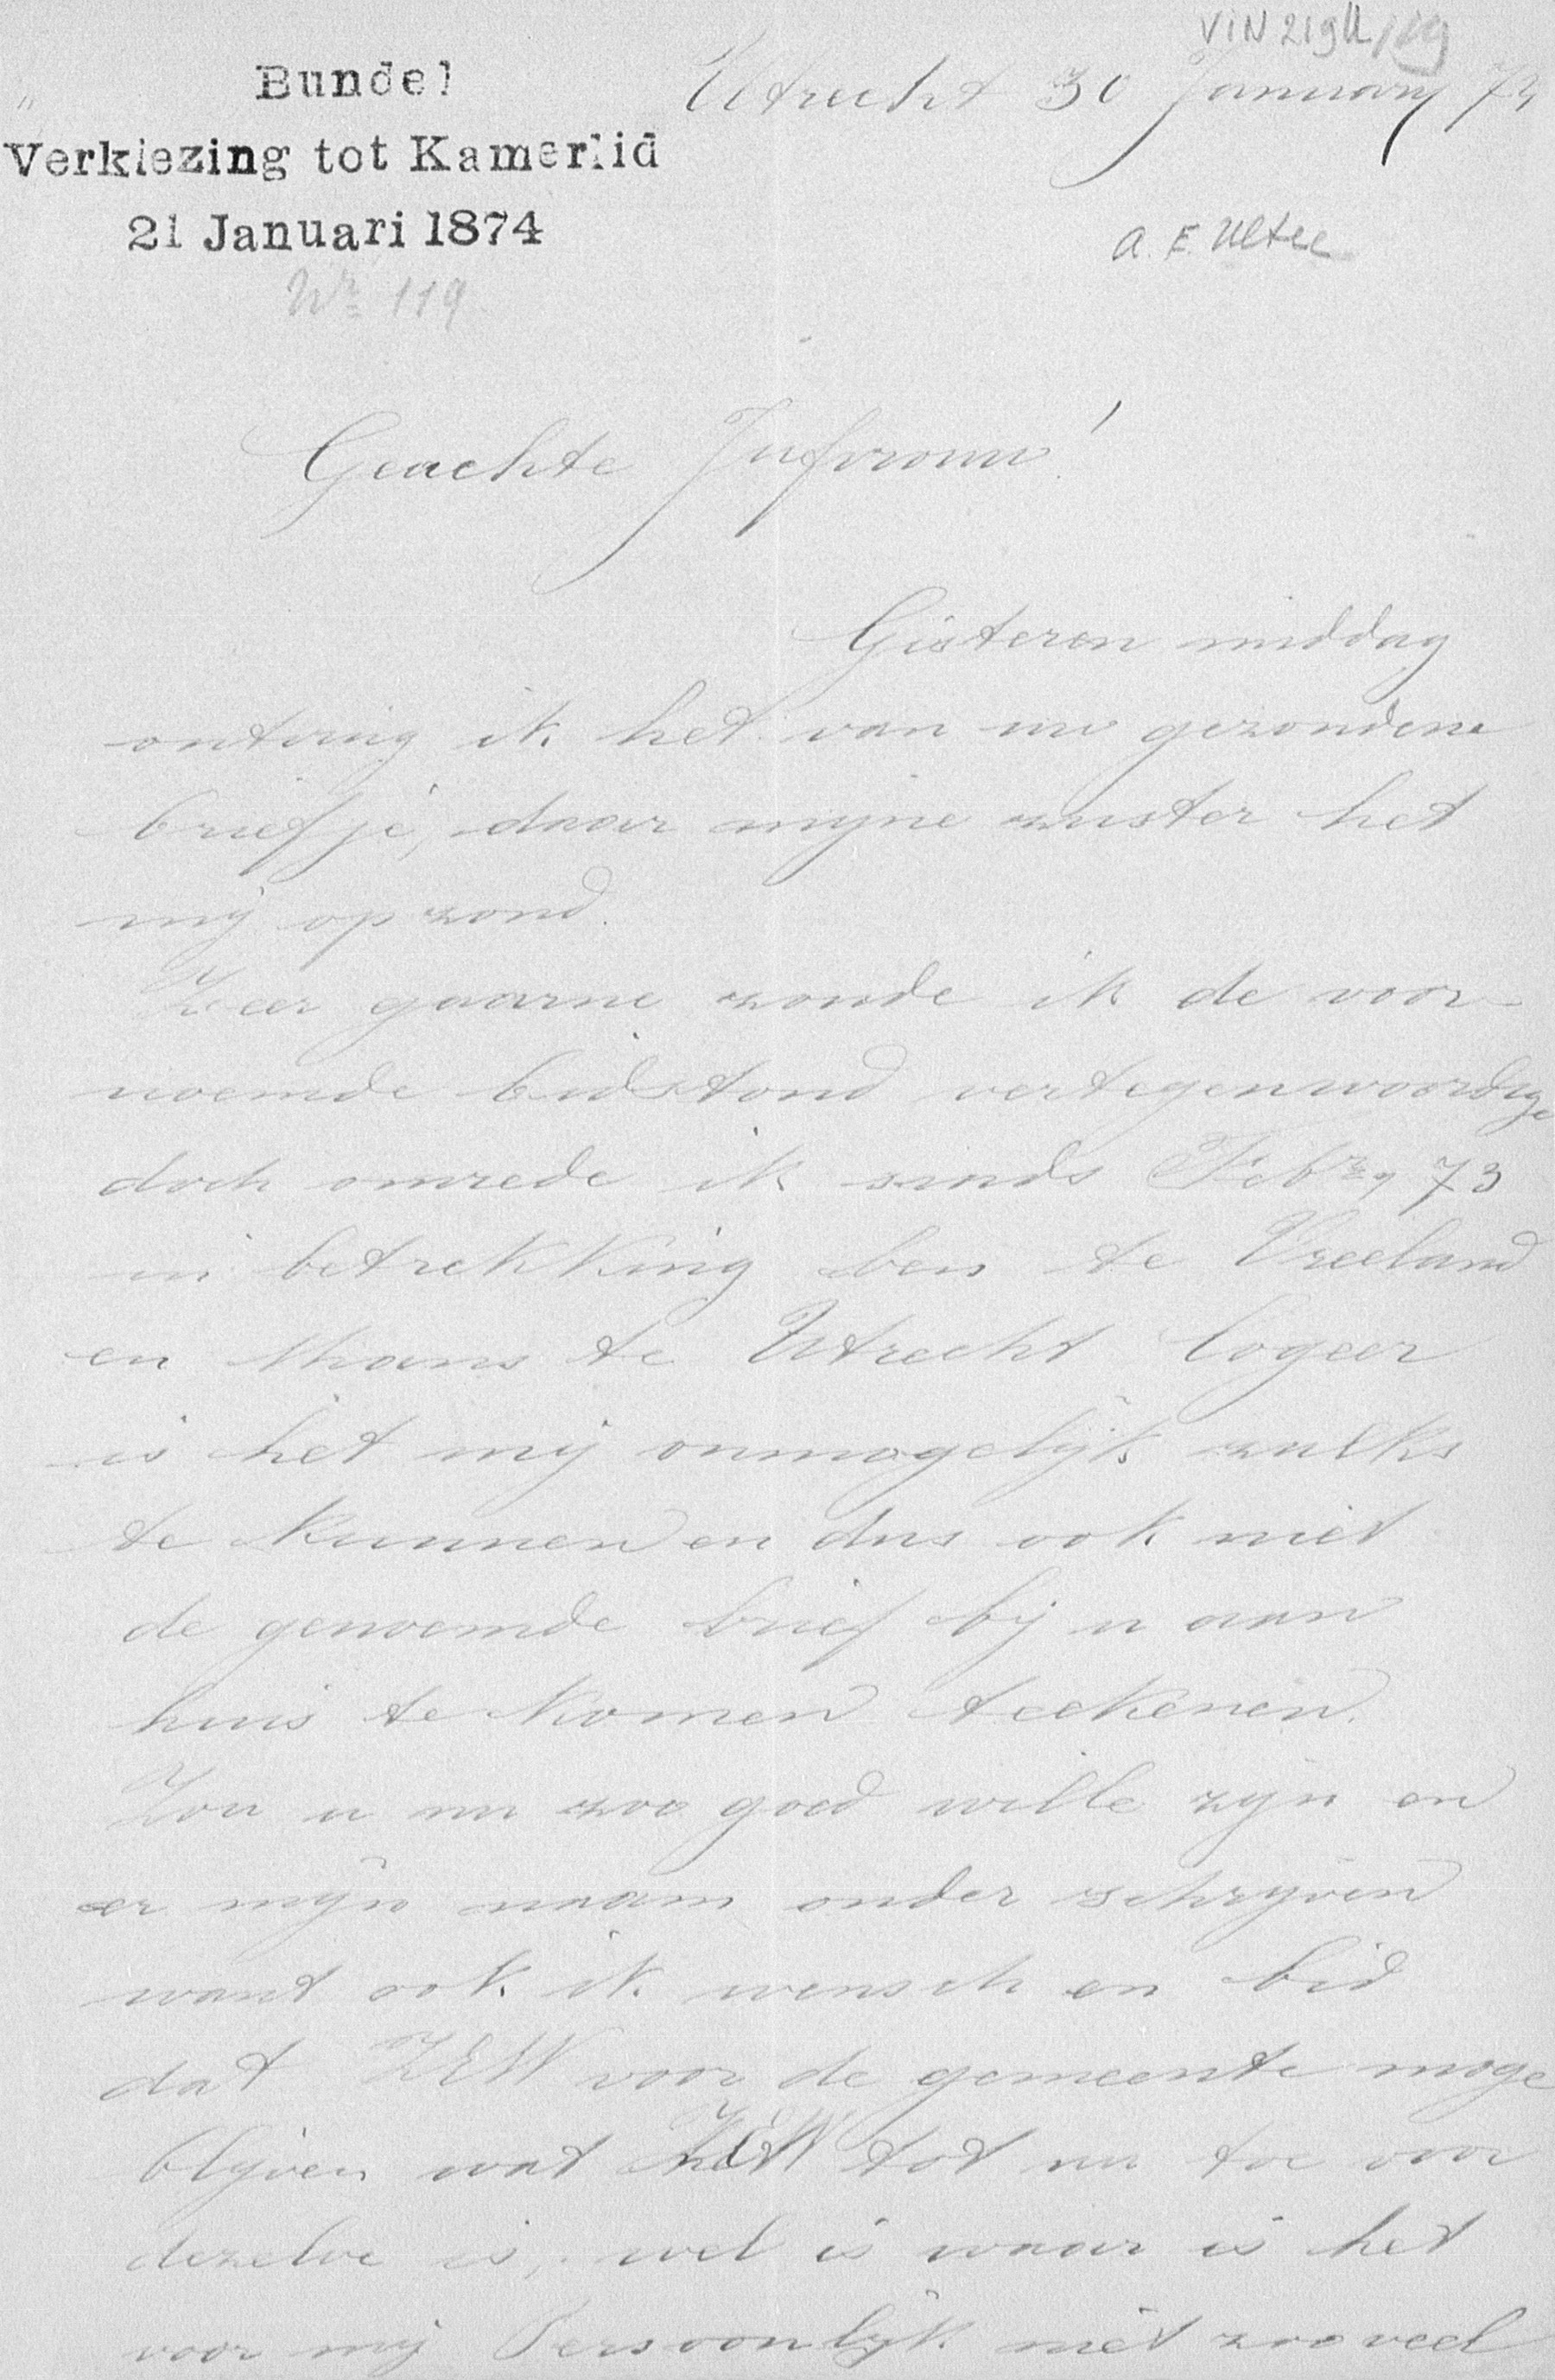 VIN 219U/119
Bundel
Utrecht 30 January 74
Verkiezing tot Kamerlid
21 Januari 1874
A. E. Ultee
Nr 119
Geachte Jufvrouw!
Gisteren middag
ontving ik het van uw gezondene
briefje, daar myne zuster het
mij op zond.
Zeer gaarne zoude ik de voor-
noemde bidstond vertegenwoordige
doch omrede ik sinds Febry 73
in betrekking ben te Vreeland
en thans te Utrecht logeer
is het mij onmogelijk zulks
te kunnen en dus ook niet
de genoemde brief bij u aan
huis te komen teekenen.
Zou u nu zoo goed wille zyn en
er mijn naam onder schryven
want ook ik wensch en bid
dat ZEW voor de gemeente moge
blyven wat ZEW tot nu toe voor
dezelve is, wel is waar is het
voor mij Persoonlyk niet zoo veel